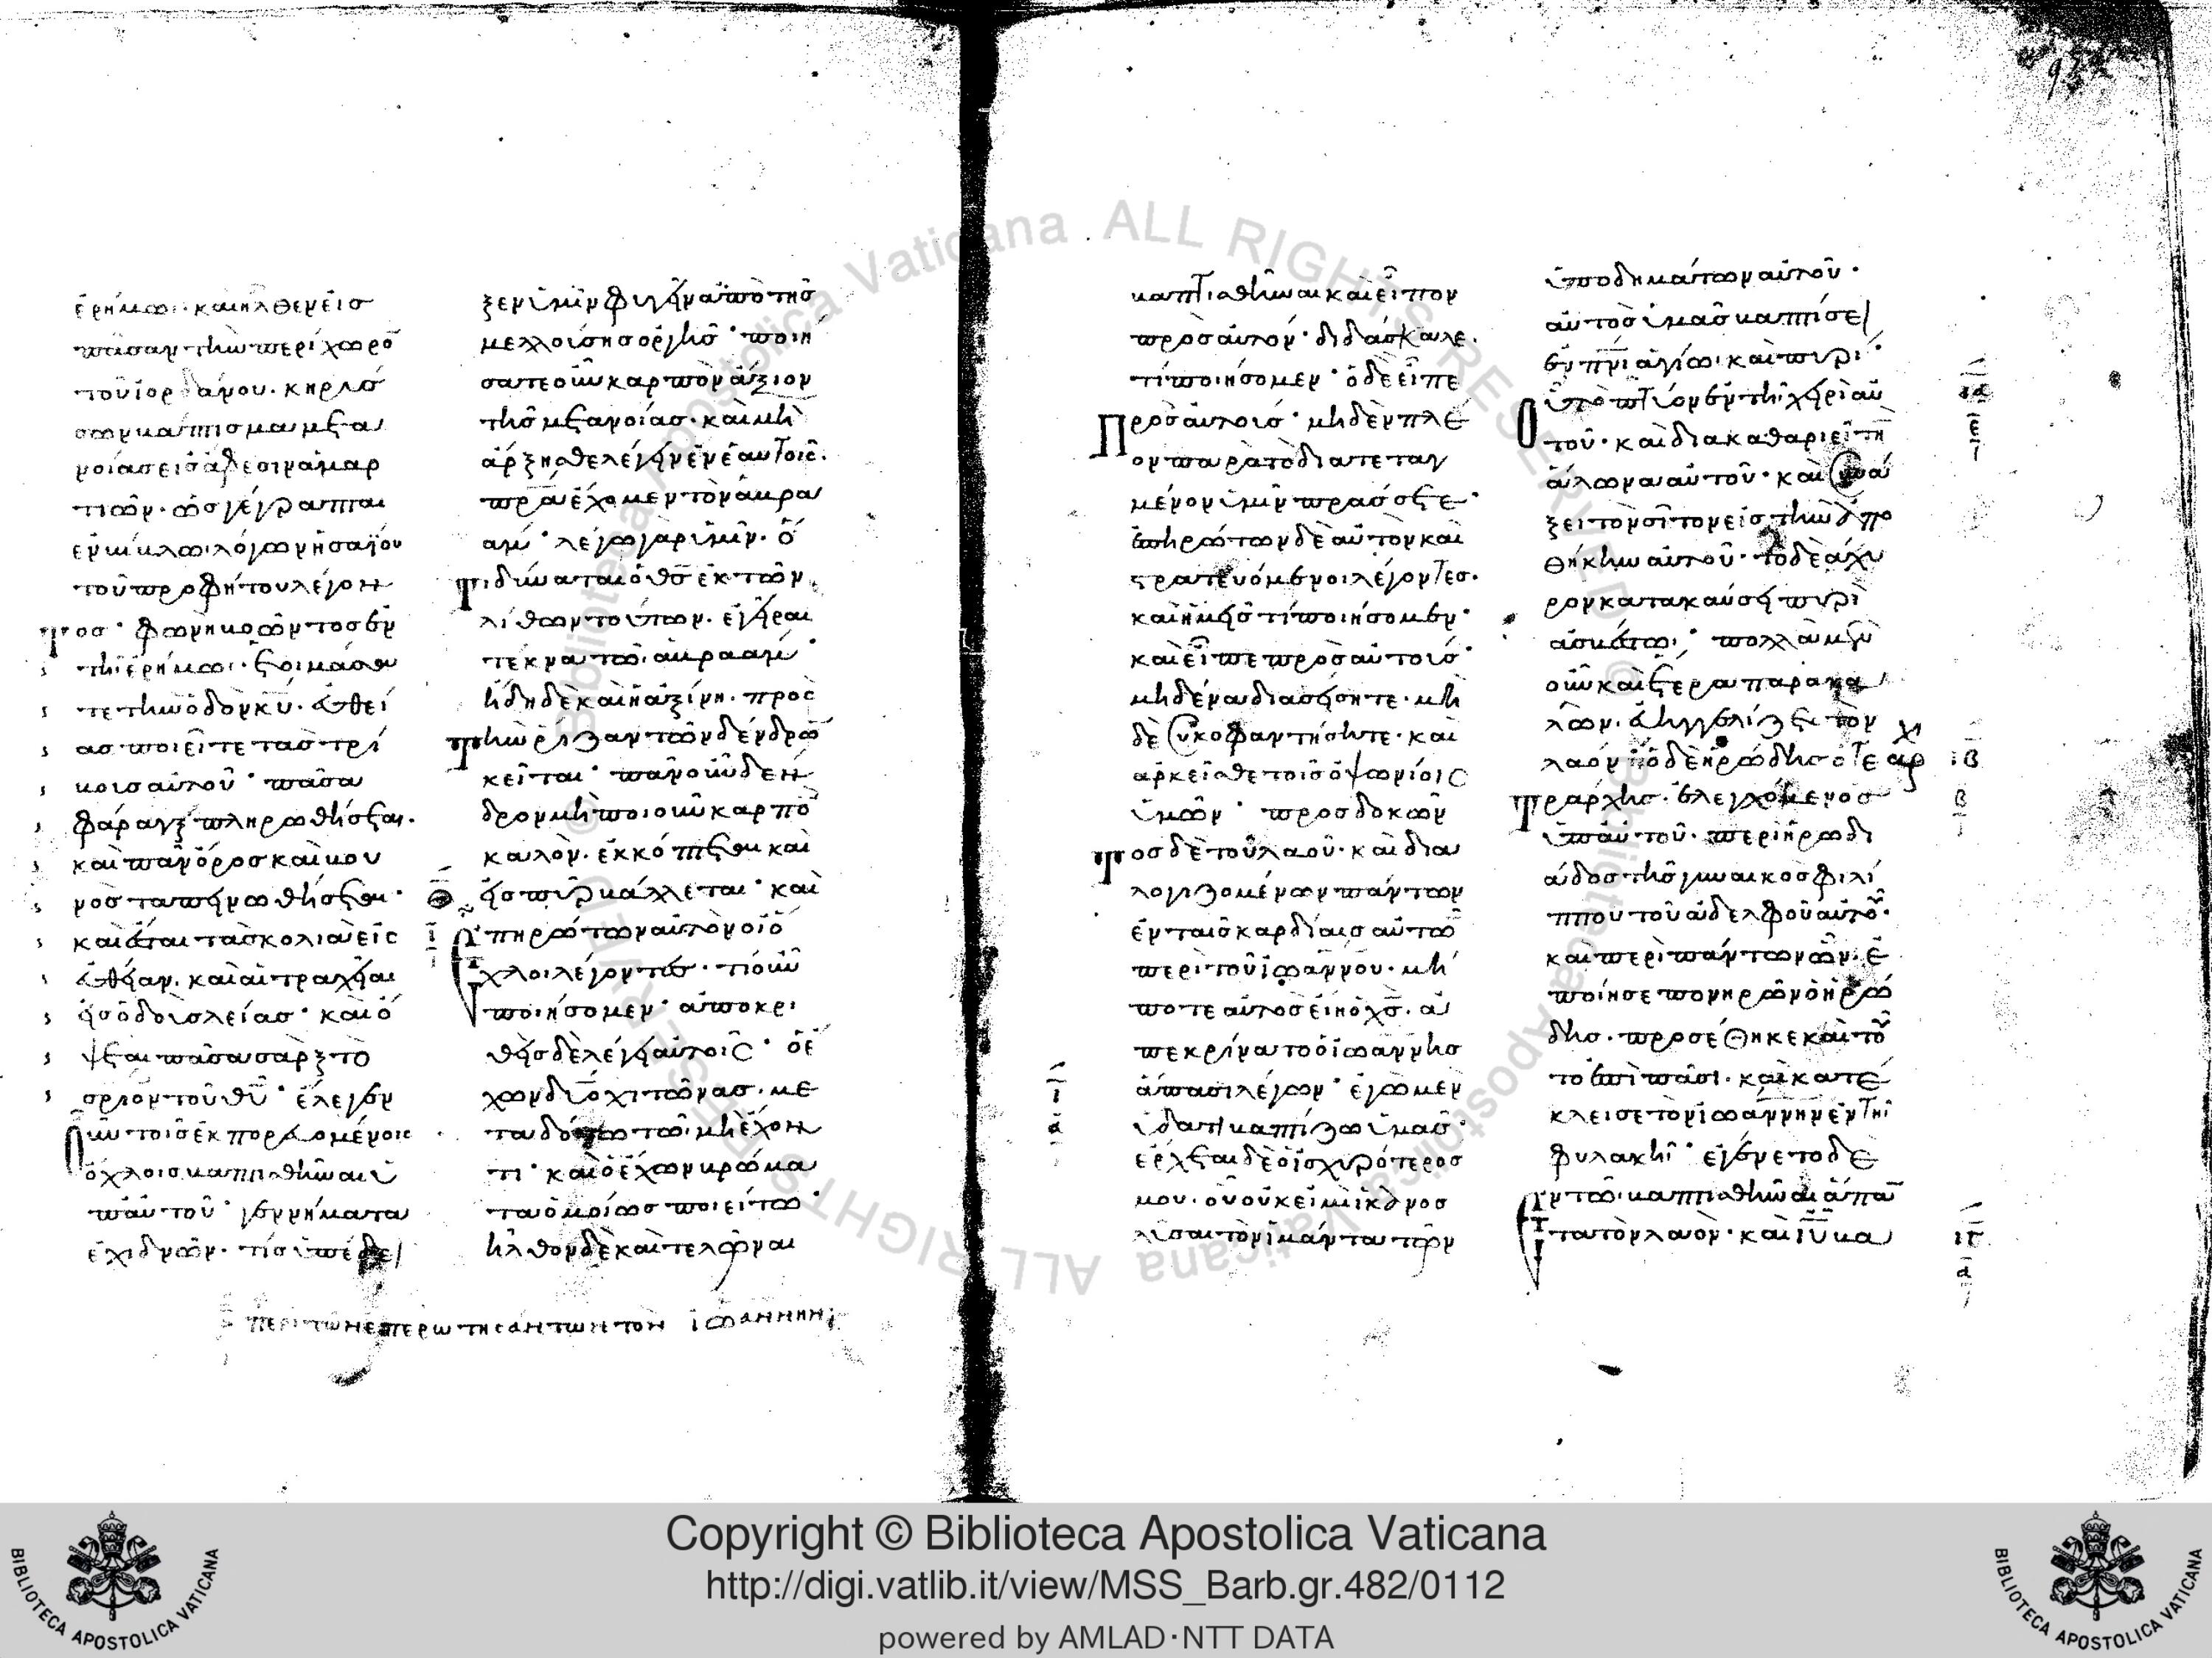 ἐρήμω· και ἦλθεν εἰσ
πᾶσαν τὴν περίχωρο
τοῦ ἰορδάνου. κηρύσ
σων βάπτισμα μετα
νοίασ εἰσ ἄφεσιν ἁμαρ
τιῶν. ὡσ γέγραπται
ἐν βίβλωι λόγων ἠσαϊου
τοῦ προφήτου λέγον
τοσ· φωνὴ βοῶντοσ ἐν
τῆ ἐρήμωι· ἑτοιμάσα
τε τὴν ὁδὸν κυ. εὐθεί
ασ ποιεῖτε τὰσ τρί
βουσ αὐτοῦ· πᾶσα
φάραγξ πληρωθήσεται.
καὶ πᾶν ὄροσ καὶ βου
νὸσ ταπεινωθήσεται·
καὶ ἔσται τὰ σκολιὰ εἰς
εὐθεῖαν. καὶ αἱ τραχεῖαι
εἰσ ὁδοὺσ λείασ· καὶ ὄ
ψεται πᾶσα σὰρξ τὸ
σριον τοῦ θυ· ἔλεγεν
οὖν τοῖσ ἐκπορευομένοις
ὄχλοισ βαπτισθῆναι ὑ
π' αὐτοῦ· γεννήματα
ἐχιδνῶν. τίσ ὑπέδει
ξεν ὑμῖν φυγεῖν ἀπὸ τῆσ
μελλούσησ ὀργῆσ· ποιή
σατε οὖν καρπὸν ἄξιον
τῆσ μετανοίασ. καὶ μὴ
ἄρξησθε λέγειν ἐν ἑαυτοῖς.
πρα ἔχομεν τὸν ἀβρα
αμ· λέγω γὰρ ὑμῖν. ὅ
τι δύναται ὁ θσ ἐκ τῶν
λίθων τούτων. ἐγεῖραι
τέκνα τῶ ἀβρααμ·
ἤδη δὲ καὶ ἡ ἀξίνη. προς
τὴν ῥίζαν τῶν δένδρω
κεῖται· πᾶν οὖν δέν
δρον μὴ ποιοῦν καρπὸ
καλὸν. ἐκκόπτεται καὶ
εἰσ πῦρ βάλλεται· καὶ
ἐπηρώτων αὐτὸν οἱ ὄ
χλοι λέγοντεσ· τί οὖν
ποιήσομεν· ἀποκρι
θεὶσ δὲ λέγει αὐτοῖς· ὁ ἔ
χων δύο χιτῶνασ. με
ταδότω τῶ μὴ ἔχον
τι· καὶ ὁ ἔχων βρώμα
τα ὁμοίωσ ποιείτω·
ἦλθον δὲ καὶ τελῶναι
περὶ τῶν ἐπερωτησάντων τὸν ἰωάννην
βαπτισθῆναι καὶ εἶπον
πρὸσ αὐτόν· διδάσκαλε.
τί ποιήσομεν· ὁ δὲ εἶπε
πρὸσ αὐτούσ· μηδὲν πλέ
ον παρὰ τὸ διατεταγ
μένον ὑμῖν πράσσετε·
ἐπηρώτων δὲ αὐτὸν καὶ
στρατευόμενοι λέγοντεσ.
καὶ ἡμεῖσ τί ποιήσομεν·
καὶ εἶπε πρὸσ αὐτούσ·
μηδένα διασείσητε. μη
δὲ συκοφαντήσητε· καὶ
ἀρκεῖσθε τοῖσ ὀψωνίοις
ὑμῶν· προσδοκῶν
τοσ δὲ τοῦ λαοῦ· καὶ δια
λογιζομένων πάντων
ἐν ταῖσ καρδίαισ αὐτῶ
περὶ τοῦ ἰωάννου. μή
ποτε αὐτὸσ εἴη ὁ χσ. ἀ
πεκρίνατο ὁ ἰωάννησ
ἅπασι λέγων· ἐγὼ μὲν
ὕδατι βαπτίζω ὑμᾶσ·
ἔρχεται δὲ ὁ ἰσχυρότεροσ
μου. οὗ οὐκ εἰμὶ ἱκανοσ
λῦσαι τὸν ἱμάντα τῶν
ὑποδημάτων αὐτοῦ·
αὐτὸσ ὑμᾶσ βαπτίσει
ἐν πνι ἁγίω καὶ πυρί·
οὗ τὸ πτύον ἐν τῆ χειρὶ αὐ
τοῦ· καὶ διακαθαριεῖ τὴ
ἅλωνα αὐτοῦ· καὶ συνά
ξει τὸν σῖτον εἰσ τὴν ἀπο
θήκην αὐτοῦ· τὸ δὲ ἄχυ
ρον κατακαύσει πυρὶ
ἀσβέστω· πολλὰ μὲν
οὖν καὶ ἕτερα παρακα
λῶν. εὐηγγελίζετο τὸν
λαόν· ὁ δὲ ἡρώδησ ὁ τε
τράρχησ. ἐλεγχόμενοσ
ὑπ' αὐτοῦ. περὶ ἡρωδι
άδοσ τῆσ γυναικὸσ φιλί
ππου τοῦ ἀδελφοῦ αὐτοῦ·
καὶ περὶ πάντων ὧν ἐ
ποίησε πονηρῶν ὁ ἡρώ
δησ. προσέθηκε καὶ τοῦ
το ἐπὶ πᾶσι. καὶ κατέ
κλεισε τὸν ἰωάννην ἐν τῆι
φυλακῆ· ἐγένετο δὲ
ἐν τῶ βαπτισθῆναι ἅπαν
τα τὸν λαὸν· καὶ ιυ βα
Copyright © Biblioteca Apostolica Vaticana
http://digi.vatlib.it/view/MSS_Barb.gr.482/0112
powered by AMLAD·NTT DATA
BIBLIOTECA APOSTOLICA VATICANA
BIBLIOTECA APOSTOLICA VATICANA